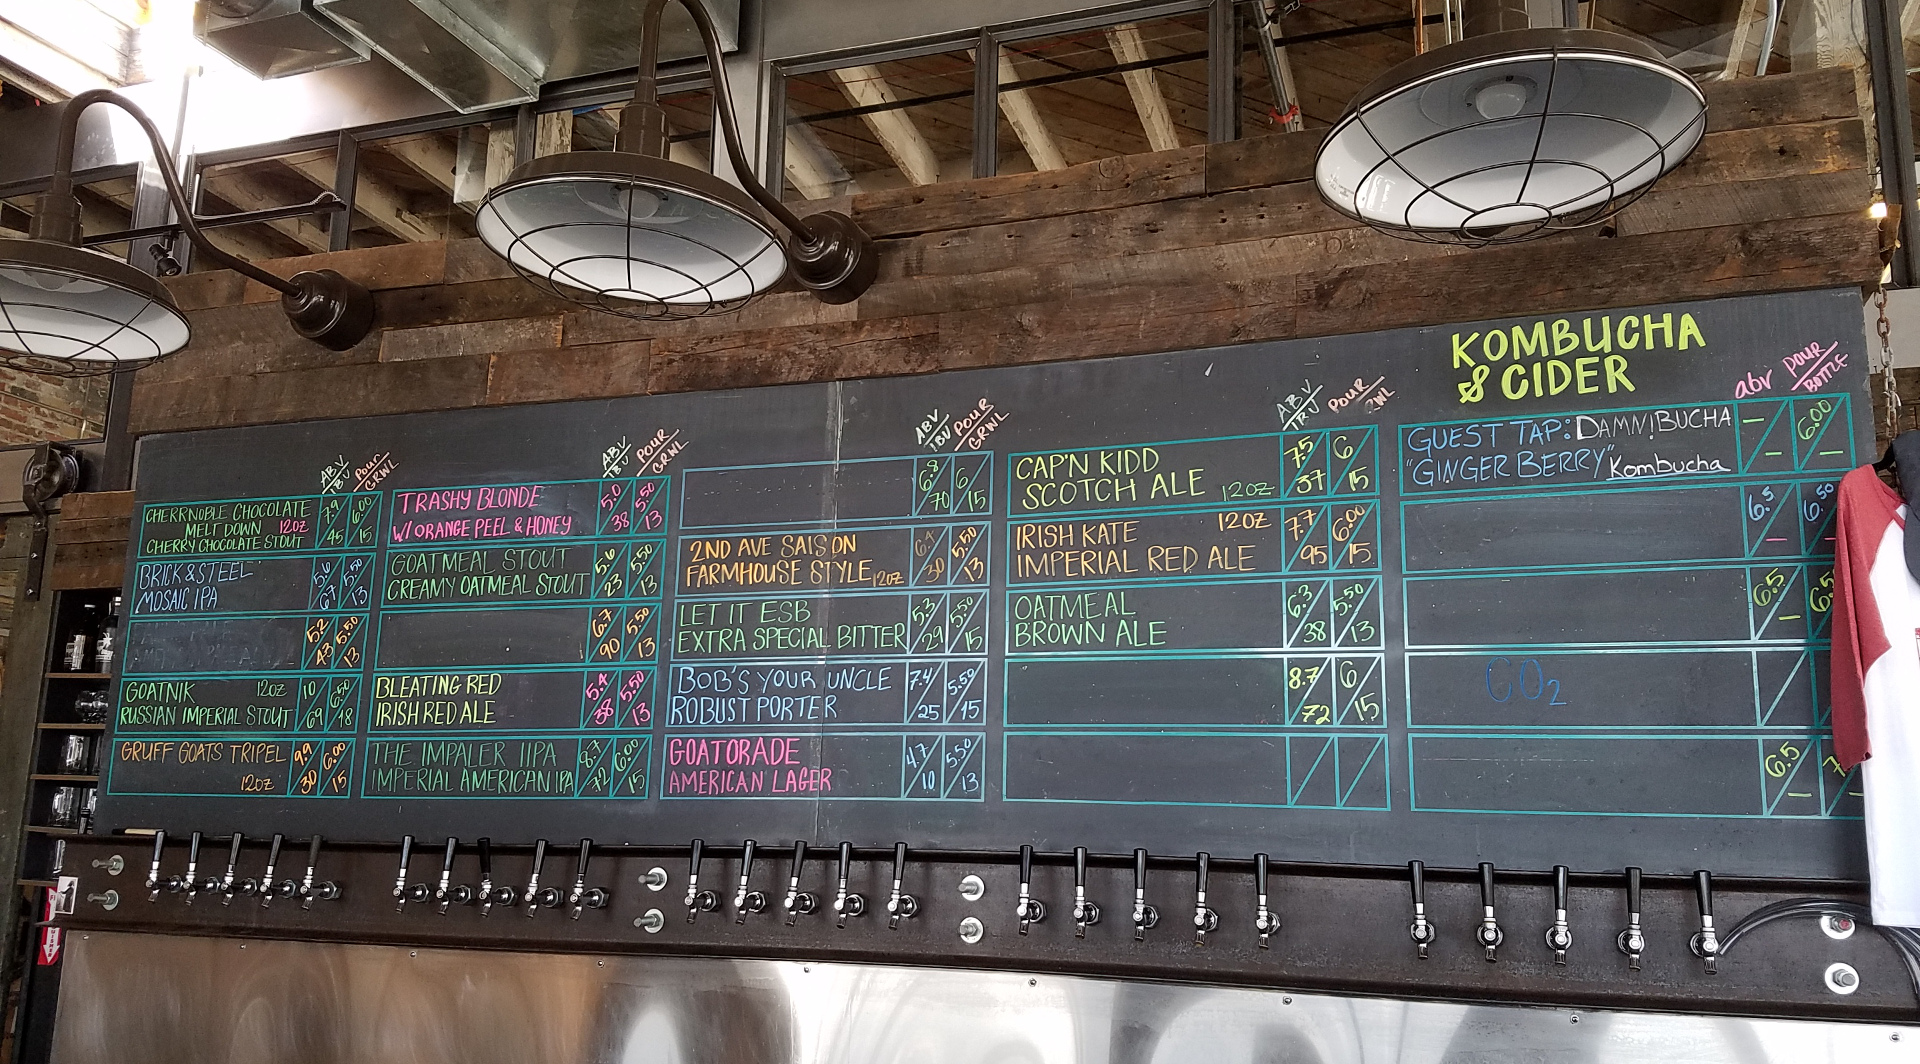 ABV
IBU
Pour
GRWL
CHERRNOBLE CHOCOLATE
MELT DOWN 12OZ
CHERRY CHOCOLATE STOUT
7.9
45
6.00
15
BRICK & STEEL
MOSAIC IPA
5.6
67
5.50
13
5.2
43
5.50
13
GOATNIK 12OZ
RUSSIAN IMPERIAL STOUT
10
69
6.50
18
GRUFF GOATS TRIPEL
12OZ
9.9
30
6.00
15
ABV
IBU
POUR
GRWL
TRASHY BLONDE
W/ ORANGE PEEL & HONEY
5.0
38
5.50
13
GOATMEAL STOUT
CREAMY OATMEAL STOUT
5.6
23
5.50
13
6.7
90
5.50
13
BLEATING RED
IRISH RED ALE
5.4
38
5.50
13
THE IMPALER IIPA
IMPERIAL AMERICAN IPA
8.7
72
6.00
15
ABV
IBU
POUR
GRWL
6.8
70
6
15
2ND AVE SAISON
FARMHOUSE STYLE 12OZ
6.4
30
5.50
13
LET IT ESB
EXTRA SPECIAL BITTER
5.3
29
5.50
15
BOB'S YOUR UNCLE
ROBUST PORTER
7.4
25
5.50
15
GOATORADE
AMERICAN LAGER
4.7
10
5.50
13
ABV
POUR
CAP'N KIDD
SCOTCH ALE 12OZ
7.5
37
6
15
IRISH KATE 12OZ
IMPERIAL RED ALE
7.7
95
6.00
15
OATMEAL
BROWN ALE
6.3
38
5.50
13
8.7
72
6
15
KOMBUCHA
& CIDER
abv
POUR
BOTTLE
GUEST TAP: DAMN!BUCHA
"GINGER BERRY" Kombucha
—
—
6.00
—
6.5
—
6.50
—
6.5
—
CO2
6.5
—